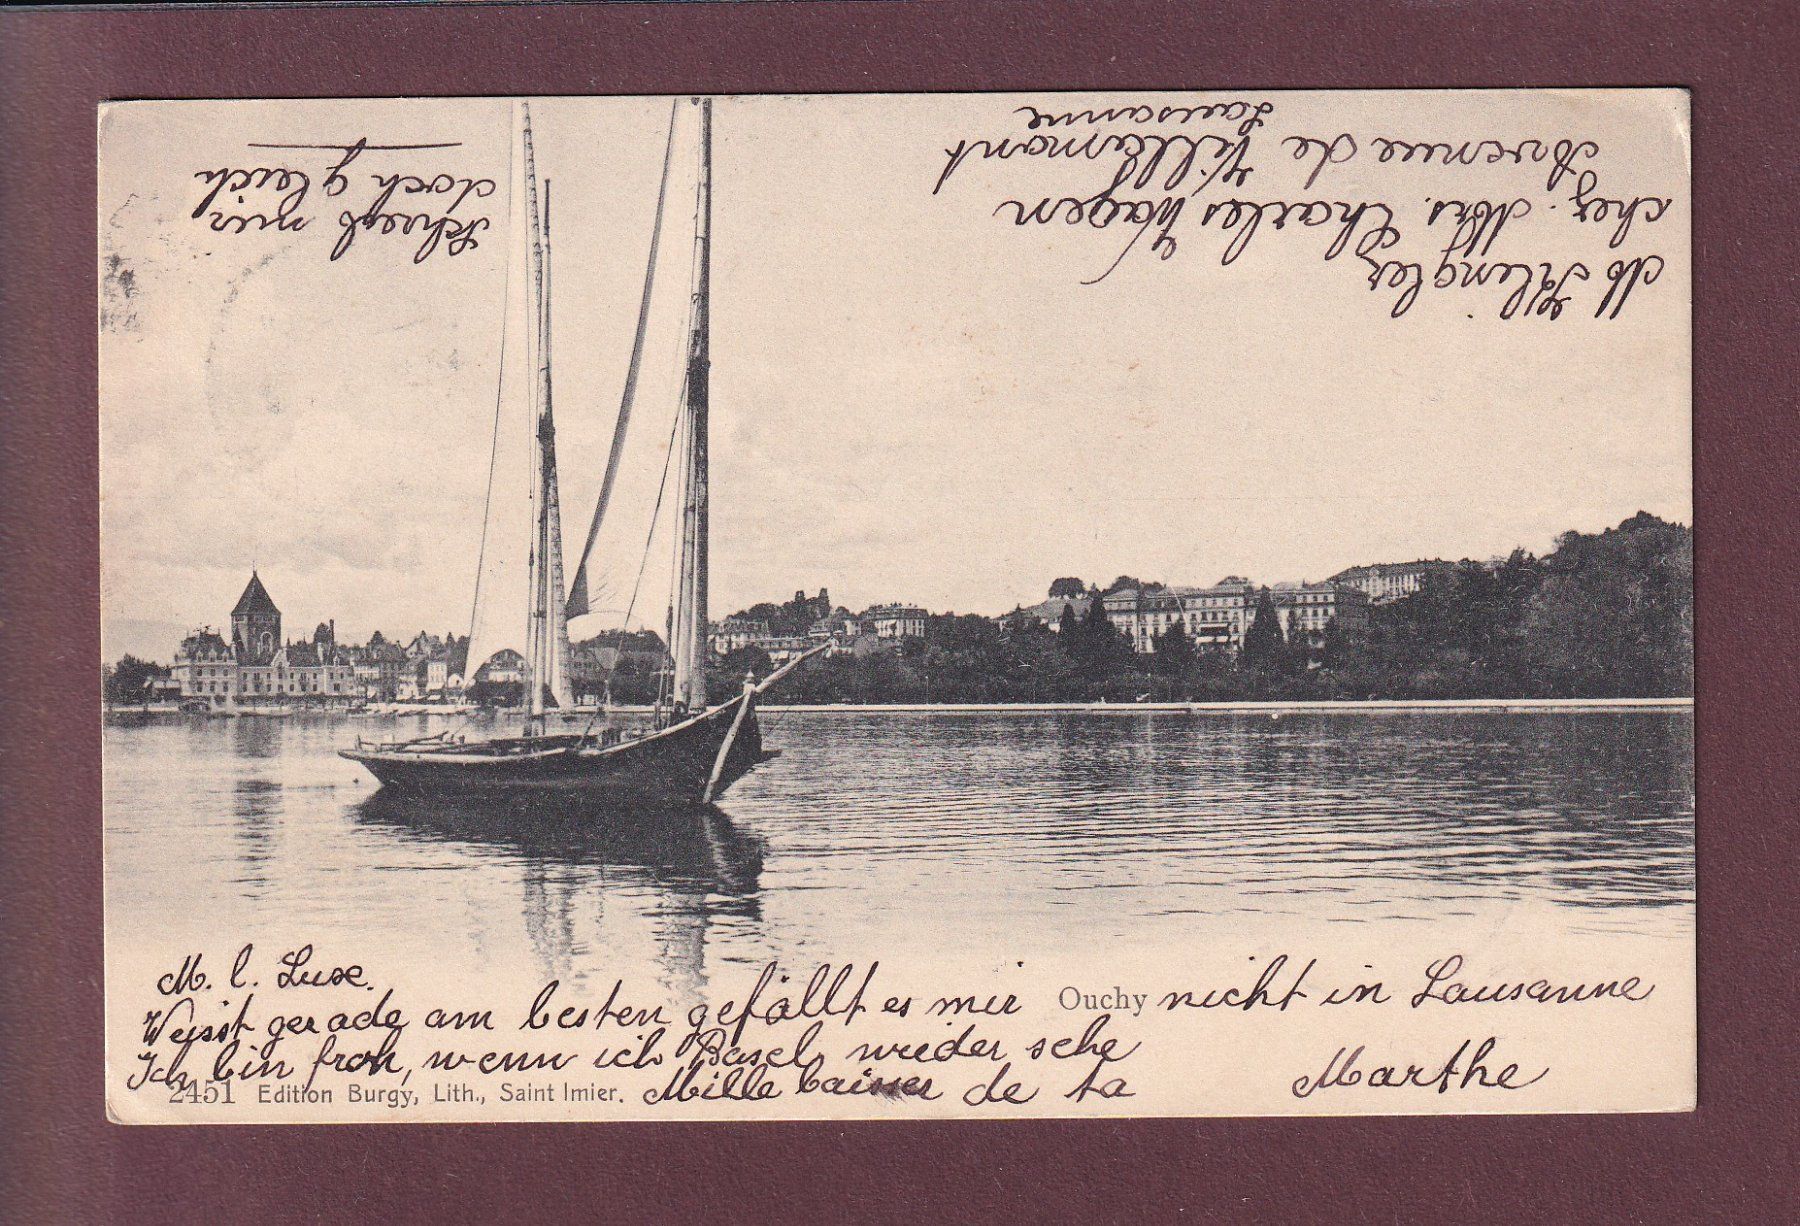 M. l. Luxe.
Weisst gerade am besten gefällt es mir Ouchy nicht in Lausanne
Ich bin froh, wenn ich Basel wieder sehe
Mille baiser de ta Marthe
2451 Edition Burgy, Lith., Saint Imier.
Schreib mir
doch gleich
M Klingler
chez. Mrs. Charles Wagen
Avenue de Villamont
Lausanne